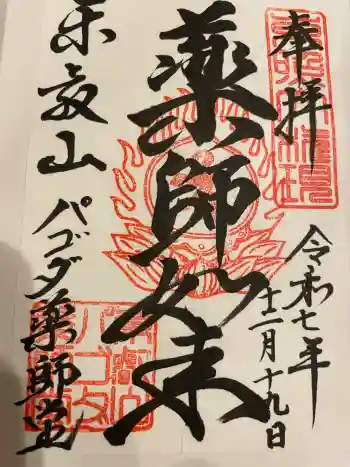 奉拝
令和七年
十二月十九日
薬師如来
山 パゴダ薬師堂